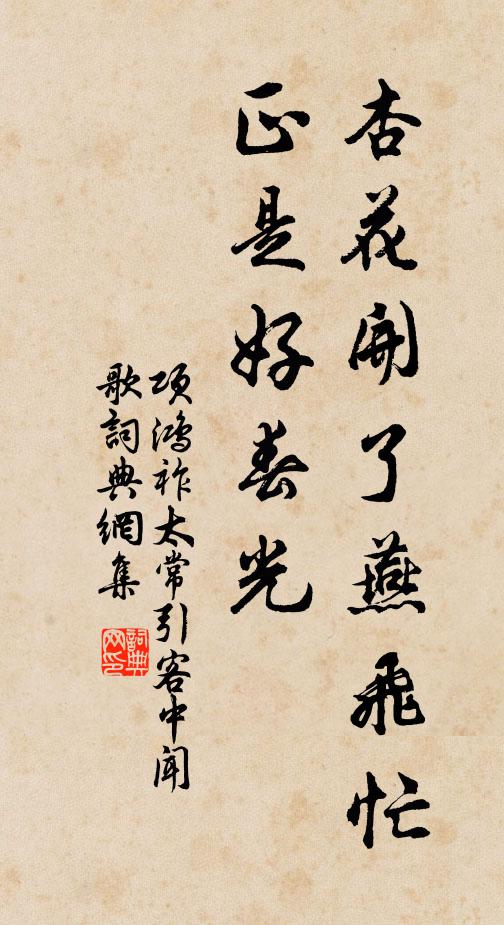 杏花開了燕飛忙
正是好春光
項鴻祚太常引客中聞
歌詞典網集
詞典网印